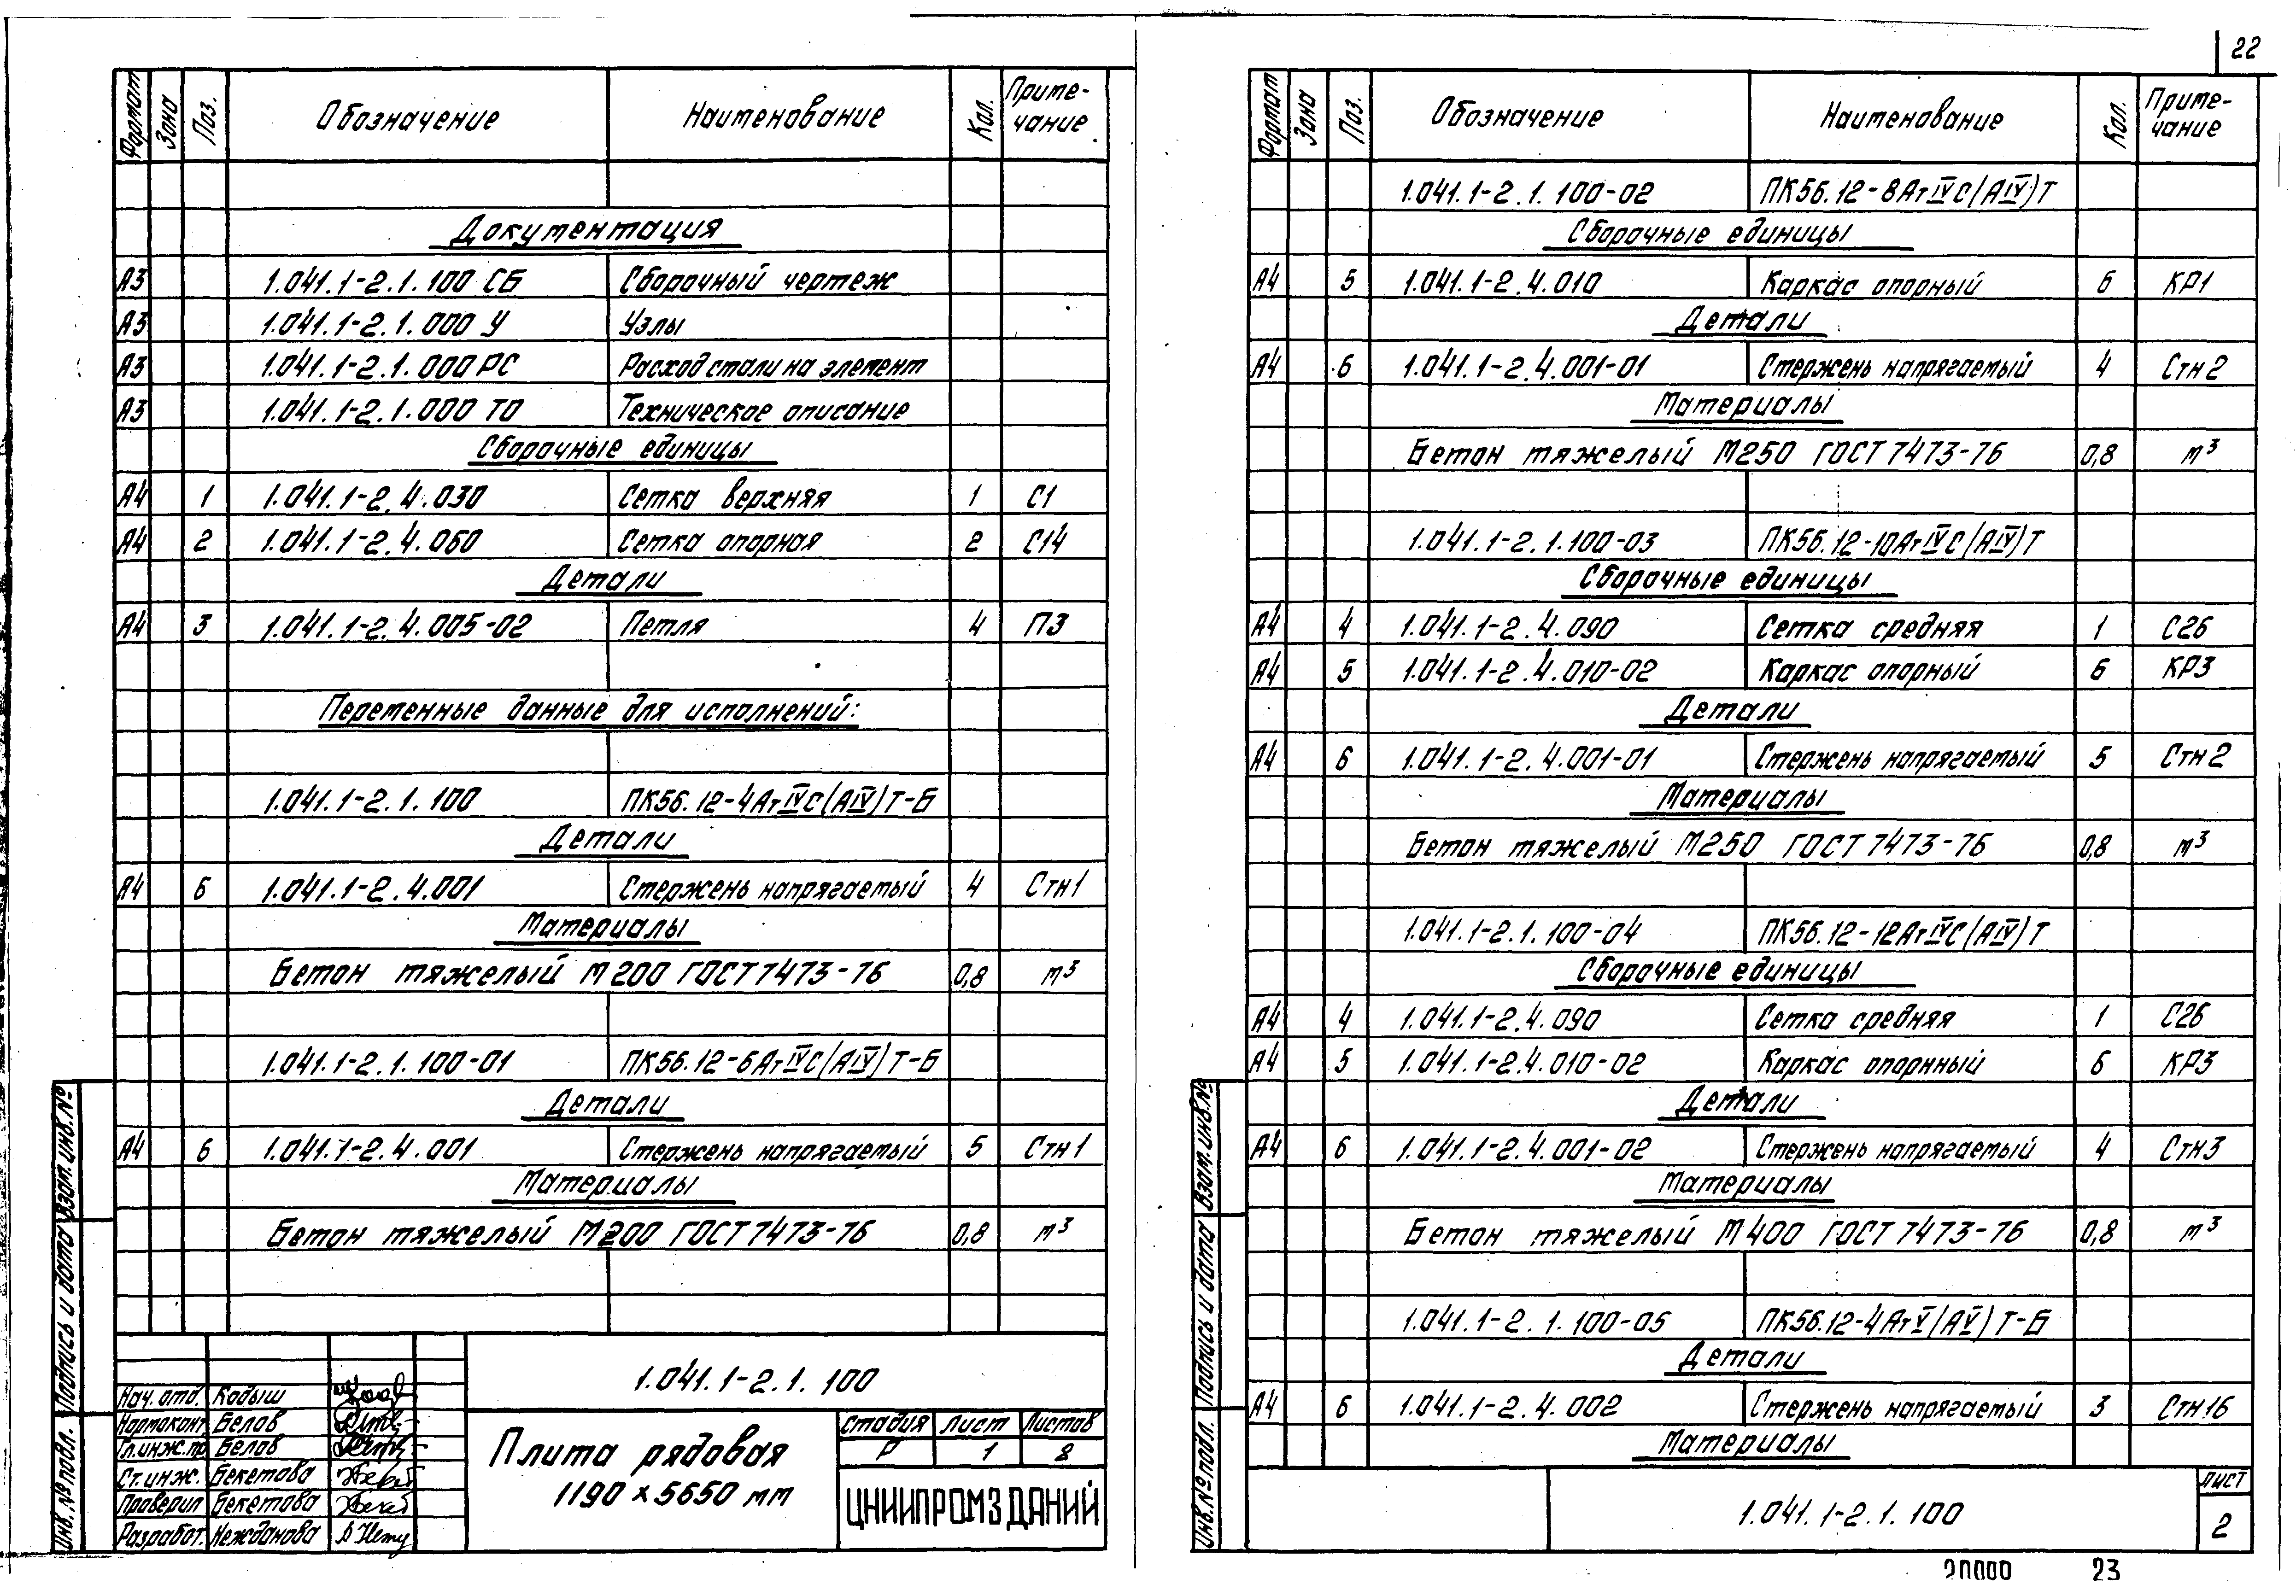 22
Формат Зона Поз. Обозначение Наименование Кол. Приме-чание
Документация
А3 1.041.1-2.1.100 СБ Сборочный чертеж
А3 1.041.1-2.1.000 У Узлы
А3 1.041.1-2.1.000 РС Расход стали на элемент
А3 1.041.1-2.1.000 ТО Техническое описание
Сборочные единицы
А4 1 1.041.1-2.4.030 Сетка верхняя 1 С1
А4 2 1.041.1-2.4.060 Сетка опорная 2 С14
Детали
А4 3 1.041.1-2.4.005-02 Петля 4 П3
Переменные данные для исполнений:
1.041.1-2.1.100 ПК56.12-4АтIVС(АIV)Т-Б
Детали
А4 6 1.041.1-2.4.001 Стержень напрягаемый 4 Стн1
Материалы
Бетон тяжелый М200 ГОСТ 7473-76 0,8 м³
1.041.1-2.1.100-01 ПК56.12-6АтIVС(АIV)Т-Б
Детали
А4 6 1.041.1-2.4.001 Стержень напрягаемый 5 Стн1
Материалы
Бетон тяжелый М200 ГОСТ 7473-76 0,8 м³
Инв.№ подл. Подпись и дата Взам.инв.№
1.041.1-2.1.100
Нач. отд. Кодыш
Нормоконт. Белов
Гл.инж.пр Белов
Ст.инж. Бекетова
Проверил Бекетова
Разработ. Нежданова
Плита рядовая
1190 x 5650 мм
Стадия Лист Листов
Р 1 8
ЦНИИПРОМЗДАНИЙ
Формат Зона Поз. Обозначение Наименование Кол. Приме-чание
1.041.1-2.1.100-02 ПК56.12-8АтIVС(АIV)Т
Сборочные единицы
А4 5 1.041.1-2.4.010 Каркас опорный 6 КР1
Детали
А4 6 1.041.1-2.4.001-01 Стержень напрягаемый 4 Стн2
Материалы
Бетон тяжелый М250 ГОСТ 7473-76 0,8 м³
1.041.1-2.1.100-03 ПК56.12-10АтIVС(АIV)Т
Сборочные единицы
А4 4 1.041.1-2.4.090 Сетка средняя 1 С26
А4 5 1.041.1-2.4.010-02 Каркас опорный 6 КР3
Детали
А4 6 1.041.1-2.4.001-01 Стержень напрягаемый 5 Стн2
Материалы
Бетон тяжелый М250 ГОСТ 7473-76 0,8 м³
1.041.1-2.1.100-04 ПК56.12-12АтIVС(АIV)Т
Сборочные единицы
А4 4 1.041.1-2.4.090 Сетка средняя 1 С26
А4 5 1.041.1-2.4.010-02 Каркас опорнный 6 КР3
Детали
А4 6 1.041.1-2.4.001-02 Стержень напрягаемый 4 Стн3
Материалы
Бетон тяжелый М400 ГОСТ 7473-76 0,8 м³
1.041.1-2.1.100-05 ПК56.12-4АтV(АV)Т-Б
Детали
А4 6 1.041.1-2.4.002 Стержень напрягаемый 3 Стн16
Материалы
Инв.№ подл. Подпись и дата Взам.инв.№
1.041.1-2.1.100
Лист
2
20000 23